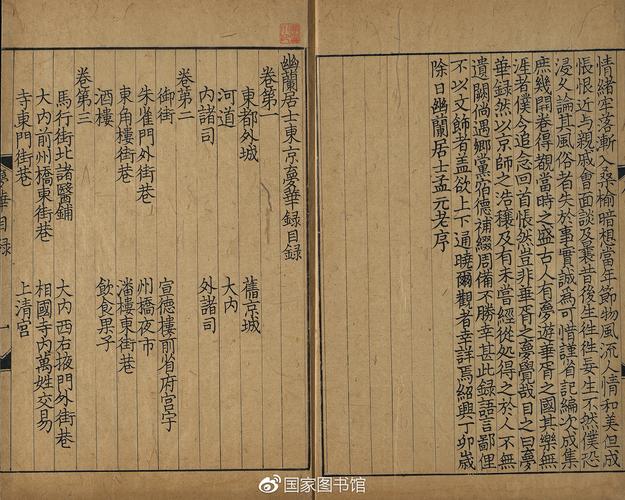 情緒牢落漸入桑榆暗想當年節物風流人情和美但成
悵恨近与親戚會面談及曩昔後生往往妄生不然僕恐
浸久論其風俗者失於事實誠為可惜謹省記編次成集
庶幾開卷得覩當時之盛古人有夢遊華胥之國其樂無
涯者僕今追念回首悵然豈非華胥之夢覺哉目之曰夢
華録然以京師之浩穰及有未嘗經從處得之於人不無
遺闕倘遇鄉黨宿德補綴周備不勝幸甚此録語言鄙俚
不以文飾者盖欲上下通曉爾觀者幸詳焉紹興丁卯歲
除日幽蘭居士孟元老序
幽蘭居士東京夢華録目録
卷第一
東都外城 舊京城
河道 大内
内諸司 外諸司
卷第二
御街 宣德樓前省府宮宇
朱雀門外街巷 州橋夜市
東角樓街巷 潘樓東街巷
酒樓 飲食果子
卷第三
馬行街北諸醫鋪 大内西右掖門外街巷
大内前州橋東街巷 相國寺内萬姓交易
寺東門街巷 上清宮
夢華目録 一
国家图书馆